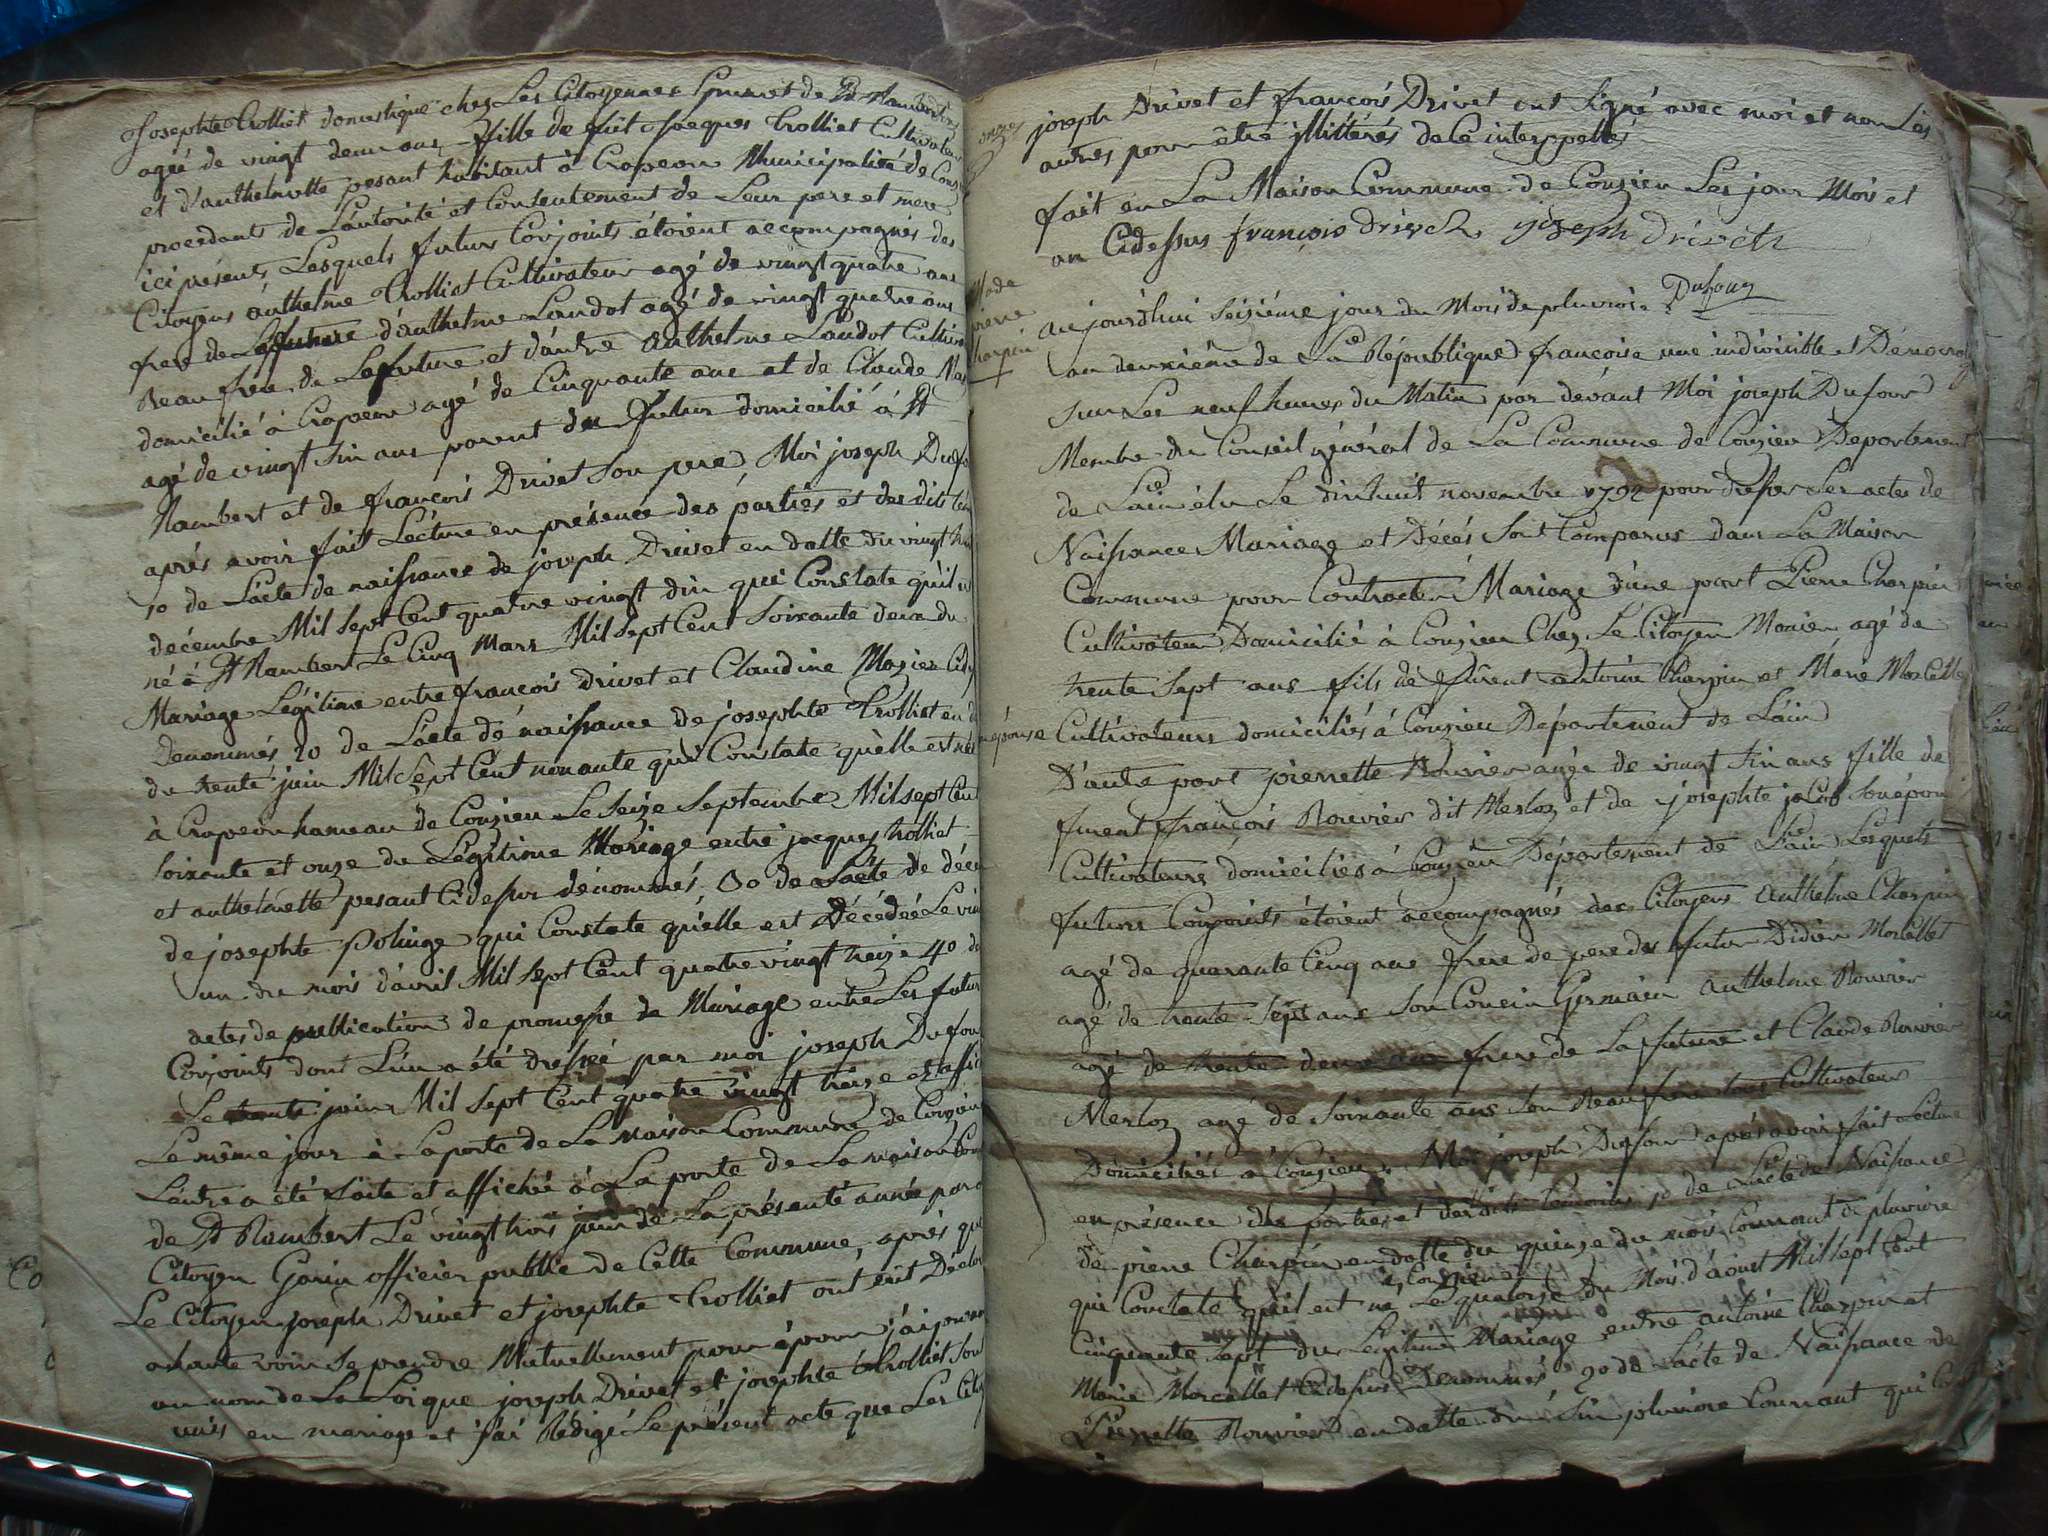 Josephte Trolliet domestique chez Les Citoyennes de St Rambert
agée de vingt deux ans fille de fût Jacques Trolliet Cultivateur
et d'anthelmette pesant habitant à Crapeou Municipalité de
procedants de L'autorité et Consentement de Leur pere et mere
ici présents Lesquels futurs Conjoints étoient accompagnés des
Citoyens anthelme Trolliet Cultivateur agé de vingt quatre ans
frere de La future d'anthelme Landot agé de vingt quatre ans
Beau frere de La future et d'autre anthelme Landot
domicilié à Crapeou agé de Cinquante ans et de Claude
agé de vingt Six ans parent du futur domicilié à St
Rambert et de françois Drivet Son pere Moi joseph
aprés avoir fait Lécture en présence des parties et des dits
10 de L'acte de naissance de joseph Drivet en datte du vingt
décembre Mil Sept Cent quatre vingt dix qui Constate qu'il
né à St Rambert Le Cinq Mars Mil Sept Cent Soixante deux du
Mariage Légitime entre françois Drivet et Claudine
Denommés 20 de L'acte de naissance de josephte Trolliet en
du trente juin Mil Sept Cent nonante qui Constate qu'elle est née
à Crapeou hameau de Conzieu Le Seize Septembre Mil Sept Cent
Soixante et onze du Légitime Mariage entre jacques trolliet
et anthelmette pesant Cidessus dénommés 30 de L'acte de
de josephte Polinge qui Constate qu'elle est Décédée Le
un du mois d'avril Mil Sept Cent quatre vingt treize 40
actes de publication de promesse de Mariage entre Les futurs
Conjoints dont L'un a été dressé par moi joseph Dufour
Le trente juin Mil Sept Cent quatre vingt treize et
Le même jour à La porte de La Maison Commune de Conzieu
L'autre a été faite et affichée à La porte de La maison
de St Rambert Le vingt trois juin de La présente année par
Citoyen Garin officier publie de Cette Commune, aprés que
Le Citoyen joseph Drivet et josephte Trolliet ont eut
a haute voix Se prendre Mutuellement pour époux j'ai
au nom de La Loi que joseph Drivet et josephte Trolliet Sont
unis en mariage et j'ai Rédigé Le présent acte que Les
joseph Drivet et françois Drivet ont Signé avec moi et non Les
autres pour être illitérés de Ce interppellés
fait en La Maison Commune de Conzieu Les jour Mois et
an Cidessus françois drivet joseph drivet
Dufour
aujourd'hui Séizième jour du Mois de pluviose
an deuxième de La République françoise une indivisible et
Sur Les neuf heures du Matin par dévant Moi joseph Dufour
Membre du Conseil général de La Commune de Conzieu Département
de L'ain élu Le dixhuit novembre 1792 pour dresser Les actes de
Naissance Mariage et Décès Sont Comparus dans La Maison
Commune pour Contracter Mariage d'une part Pierre Charpin
Cultivateur Domicilié à Conzieu Chez Le Citoyen Monier agé de
trente Sept ans fils de furent antoine Charpin et Marie
Cultivateurs domiciliés à Conzieu Département de L'ain
D'autre part pierrette Rouvier agée de vingt Six ans fille de
furent françois Rouvier dit Merloz et de josephte jacob
Cultivateurs domiciliés à Conzieu Département de L'ain Lesquels
futurs Conjoints étoient accompagnés des Citoyens anthelme Charpin
agé de quarante Cinq ans frere de pere du futur Didier Morcellet
agé de trente Sept ans Son Cousin Germain anthelme Rouvier
agé de trente deux ans frere de La future et Claude Rouvier
Merloz agé de Soixante ans Son Beau frere tous Cultivateurs
Domiciliés à Conzieu. Moi joseph Dufour aprés avoir fait Lecture
en présence des parties et desdits témoins 10 de L'acte de Naissance
de pierre Charpin en datte du quinze du mois Courrant de pluviose
à Conzieu
qui Constate qu'il est né Le quatorze Du Mois d'aoust Mil Sept Cent
Cinquante Sept du Légitime Mariage entre antoine Charpin et
Marie Morcellet Cidessus Dénommés 20 de L'acte de Naissance de
Pierrette Rouvier en datte du Six pluviose Courrant qui